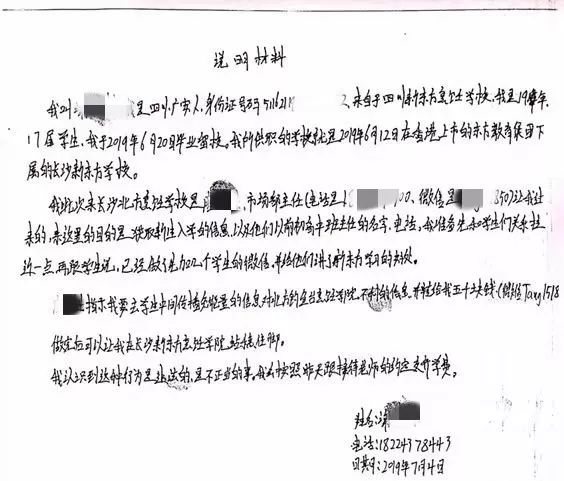 说明材料
我叫 是四川广安人,身份证号码511621 2,来自于四川新东方烹饪学校,我是19年
17届学生,我于2019年6月20日毕业留校。我所供职的学校就是2019年6月12日在香港上市的东方教育集团下
属的长沙新东方学校。
我此次来长沙北方烹饪学校是 市场部主任(电话是1 00、微信是 850)让我过
来的,来这里的目的是:获取新生入学的信息,以及他们以前初高中班主任的名字、电话,我准备先和学生们关系拉
近一点再跟学生说,已经做了 个学生的微信,并给他们讲了新东方学习的好处。
指示我要去学生中间传播负能量的信息,对北方的 烹饪学院不利的信息,并转给我五十块钱(微信Tang1518
做完后可以让我在长沙新东方烹饪学院 住
我认识到这种行为是违法的,是不正当的事。我会按照昨天跟接待老师的约定交所学费。
姓名:
电话:18224378443
日期:2019年7月4日